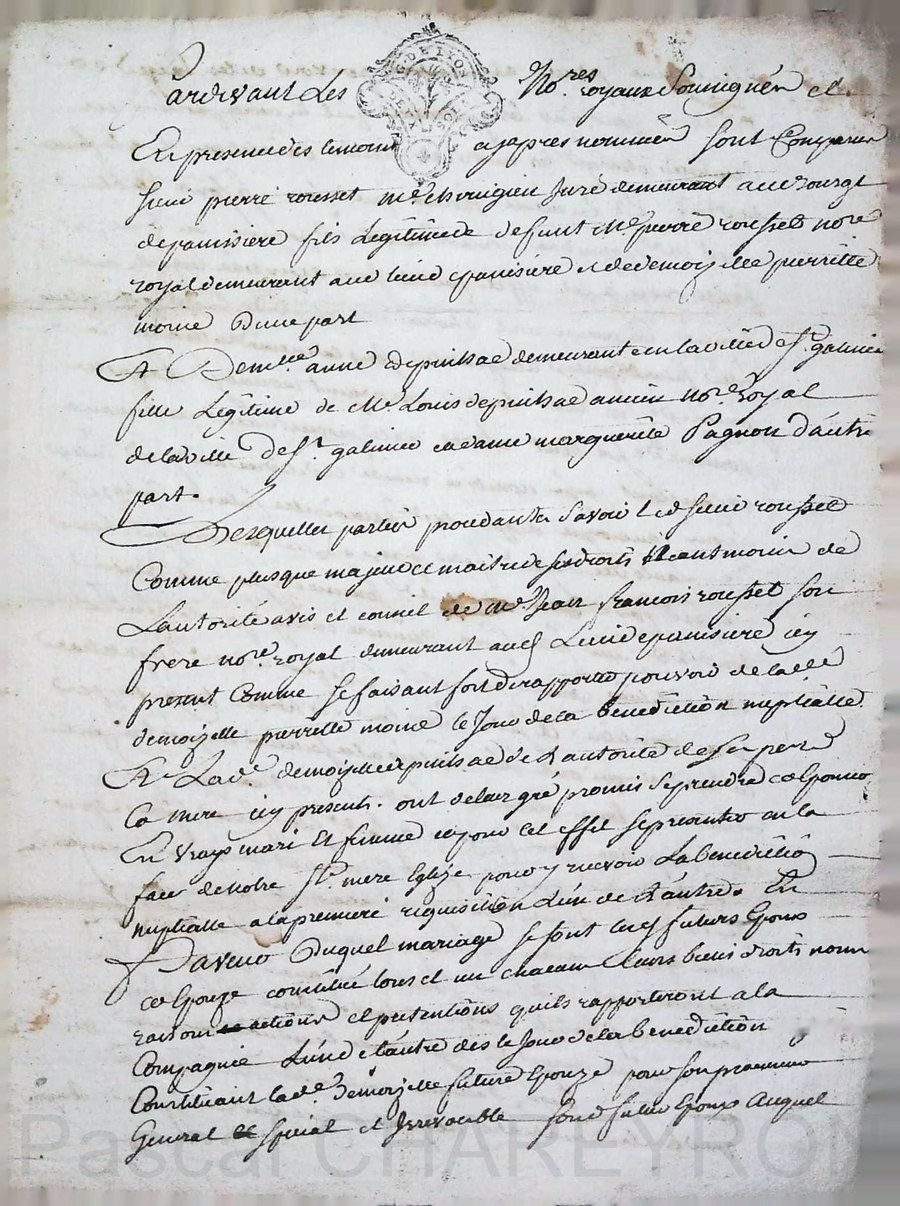 Pardevant Les No.res royaux Soussignés et
En presence des temoins cy apres nommés sont Comparus
sieur pierre rousset me. chirugien Juré demeurant au Bourgt
de panissiere fils Légitime de defunt Me pierre rousset nore
royal demeurant aud lieu de panisiere et de demoizelle pierrette
moine D'une part
Et Demlle anne depuitsac demeurante en la ville de St. galmier
fille Légitime de Me. Louis depuitsac ancien nore. royal
de la ville de St. galmier et dame marguerite Pagnon d'autre
part.
Lesquelles parties procedantes savoir Led sieur rousset
Comme plus que majeur et maitre de ses droits neantmoins de
L'autorité avis et conseil de Me Jean françois rousset son
frere nore. royal demeurant aud Lieu de panisiere icy
present Comme se faisant fort de rapporter pouvoir de lade
demoizelle pierrette moine le Jour de la benediction nuptialle
Et Lade. demoizelle depuitsac de L'autorité de ses pere
et mere icy presents. ont de leur gré promis se prendre et Epouser
En vrays mari et femme et pour cet effet se presenter en la
face de notre Ste. mere Eglize pour y recevoir La benediction
nuptialle a la premiere requisition L'un de L'autre. En
faveur Duquel mariage se sont lesd futurs Epoux
et Epouze constitué tous et un chacun Leurs biens droits noms
raisons actions et pretentions qu'ils rapporteront a la
Compagnie L'un de L'autre des le Jour de la benediction
Constituant lade. Demoizelle future Epouze pour son procureur
General special et Irrevocable sond futur Epoux Auquel
G. DE LYON
Pascal CHAREYRON